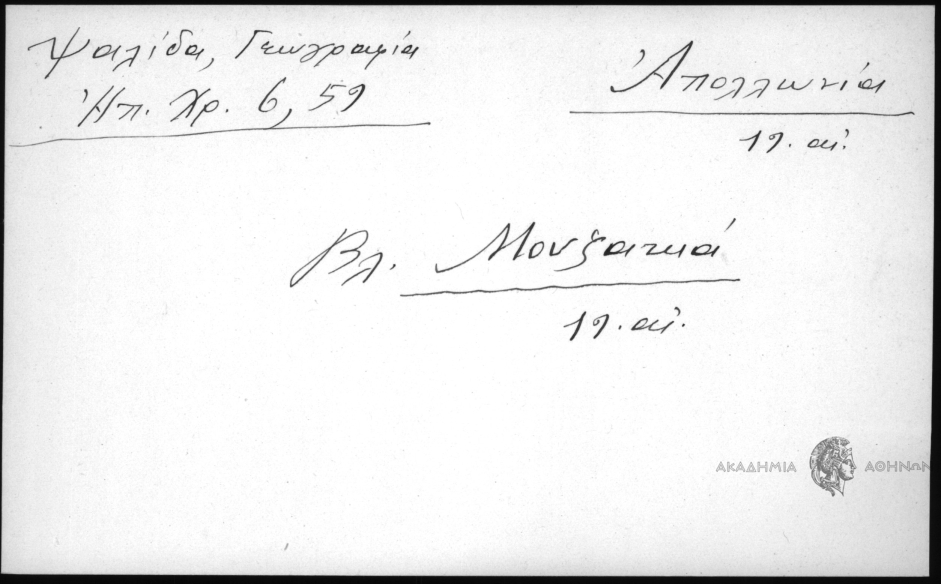 Ψαλίδα, Γεωγραφία
Ἠπ. Χρ. 6, 59
Ἀπολλωνία
19. αἰ.
Βλ. Μουζακιά
19. αἰ.
ΑΚΑΔΗΜΙΑ ΑΘΗΝΩΝ